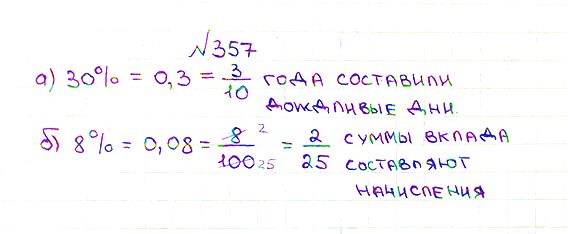 №357
а) 30% = 0,3 = 3/10 года составили
дождливые дни.
б) 8% = 0,08 = 8 2/100 25 = 2/25 суммы вклада
составляют
начисления